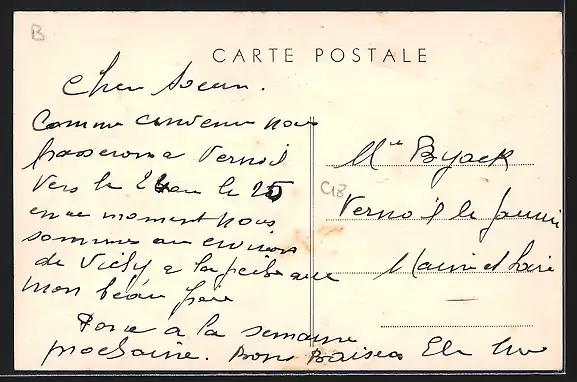 B
CARTE POSTALE
Cher Soeur.
Comme convenu nous
passerons a Vernoil
Vers le 24 ou le 25
en ce moment nous
sommes au environ
de Vichy a la peche avec
mon beau frere
Donc a la semaine
prochaine. Bons Baisers
Mlle
C18
Vernoil le Fourrier
Maine et Loire